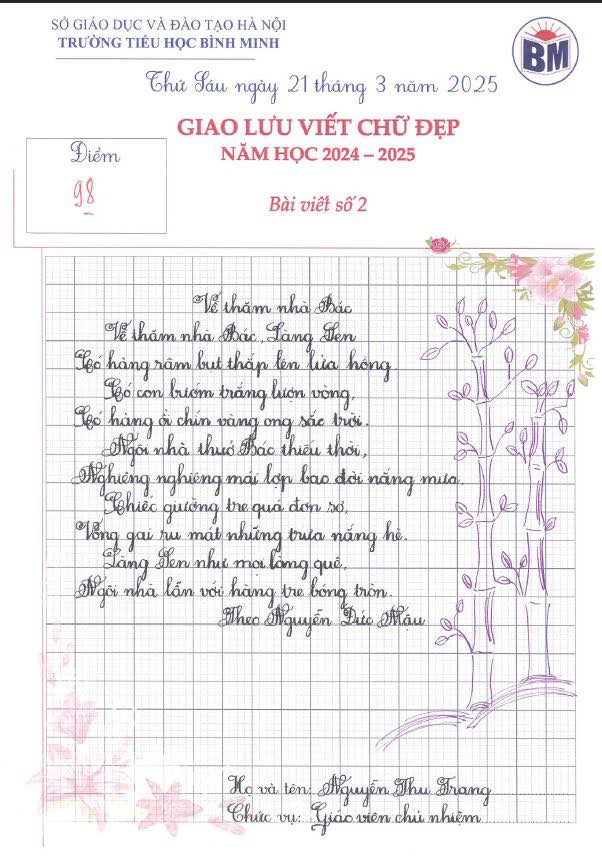 SỞ GIÁO DỤC VÀ ĐÀO TẠO HÀ NỘI
TRƯỜNG TIỂU HỌC BÌNH MINH
BM
Thứ Sáu ngày 21 tháng 3 năm 2025
GIAO LƯU VIẾT CHỮ ĐẸP
NĂM HỌC 2024 – 2025
Điểm
98
Bài viết số 2
Về thăm nhà Bác
Về thăm nhà Bác, Làng Sen
Có hàng râm bụt thắp lên lửa hồng.
Có con bướm trắng lượn vòng,
Có hàng ổi chín vàng ong sắc trời.
Ngôi nhà thuở Bác thiếu thời,
Nghiêng nghiêng mái lợp bao đời nắng mưa.
Chiếc giường tre quá đơn sơ,
Võng gai ru mát những trưa nắng hè.
Làng Sen như mọi làng quê,
Ngôi nhà lẫn với hàng tre bóng tròn.
Theo Nguyễn Đức Mậu
Họ và tên: Nguyễn Thu Trang
Chức vụ: Giáo viên chủ nhiệm